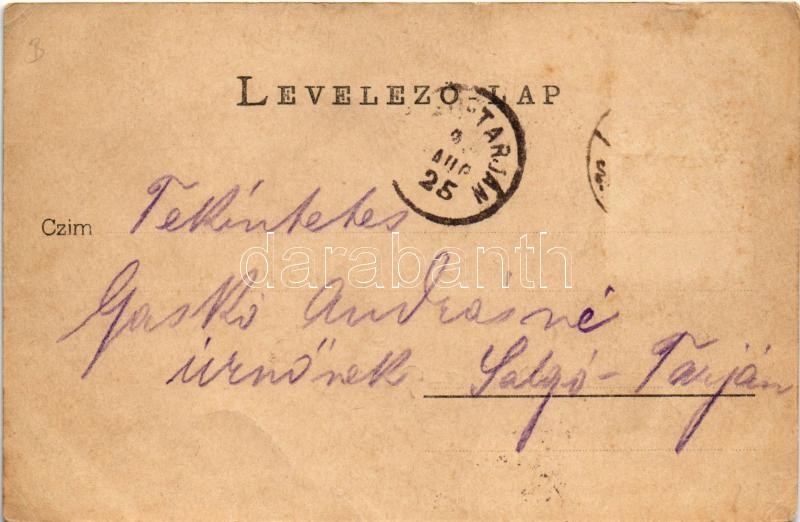 B
LEVELEZŐ-LAP
TARJÁN
AUG
25
Czim
Tekintetes
darabanth
Gaskó Andrásné
úrnőnek Salgó-Tarján